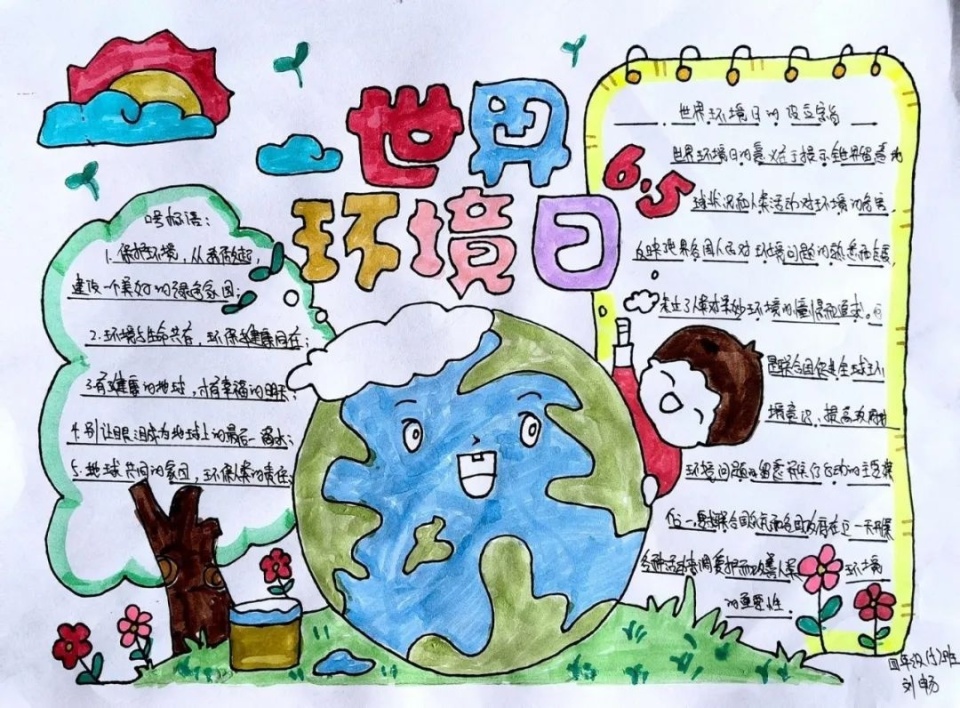 世界
环境日
6.5
口号标语：
1. 保护环境，从我做起，
建设一个美好的绿色家园；
2. 环境与生命共存，环保与健康同在；
3. 有健康的地球，才有幸福的明天；
4. 别让眼泪成为地球上的最后一滴水；
5. 地球共同的家园，环保人类的责任。
世界环境日的设立宗旨
世界环境日的意义在于提示全世界留意地
球状况和人类活动对环境的危害，
反映世界各国人民对环境问题的熟悉和态度，
表达了人类对美妙环境的憧憬和追求。
是联合国促进全球环
境意识，提高政府对
环境问题的留意并采行动的主要媒
介之一，联合国系统和各国政府在这一天开展
各种活动强调爱护和改善人类环境
的重要性。
四年级
刘畅